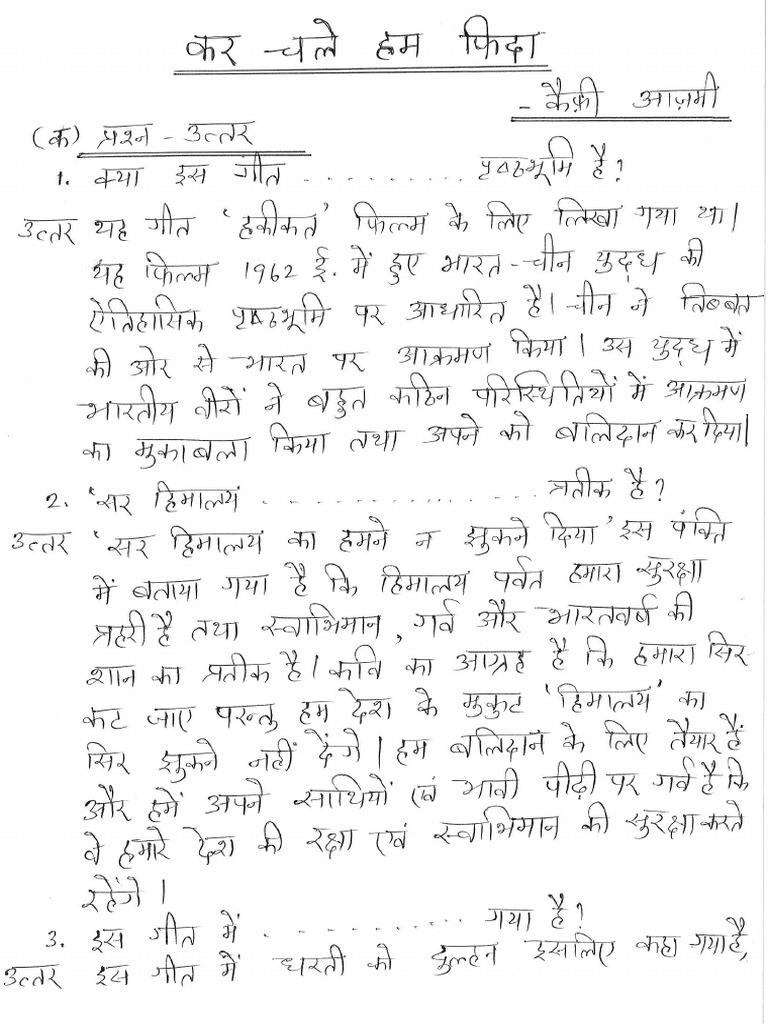 कर चले हम फिदा
- कैफ़ी आज़मी
(क) प्रश्न - उत्तर
1. क्या इस गीत . . . . . . . . . . पृष्ठभूमि है?
उत्तर यह गीत 'हकीकत' फिल्म के लिए लिखा गया था।
यह फिल्म 1962 ई. में हुए भारत - चीन युद्ध की
ऐतिहासिक पृष्ठभूमि पर आधारित है। चीन ने तिब्बत
की ओर से भारत पर आक्रमण किया। उस युद्ध में
भारतीय वीरों ने बहुत कठिन परिस्थितियों में आक्रमण
का मुकाबला किया तथा अपने को बलिदान कर दिया।
2. 'सर हिमालय . . . . . . . . . . . . . . . प्रतीक है?
उत्तर 'सर हिमालय का हमने न झुकने दिया' इस पंक्ति
में बताया गया है कि हिमालय पर्वत हमारा सुरक्षा
प्रहरी है तथा स्वाभिमान, गर्व और भारतवर्ष की
शान का प्रतीक है। कवि का आग्रह है कि हमारा सिर
कट जाए परन्तु हम देश के मुकुट 'हिमालय' का
सिर झुकने नहीं देंगे। हम बलिदान के लिए तैयार हैं
और हमें अपने साथियों एवं भावी पीढ़ी पर गर्व है कि
वे हमारे देश की रक्षा एवं स्वाभिमान की सुरक्षा करते
रहेंगे।
3. इस गीत में . . . . . . . . . . . गया है?
उत्तर इस गीत में धरती को दुल्हन इसलिए कहा गया है,